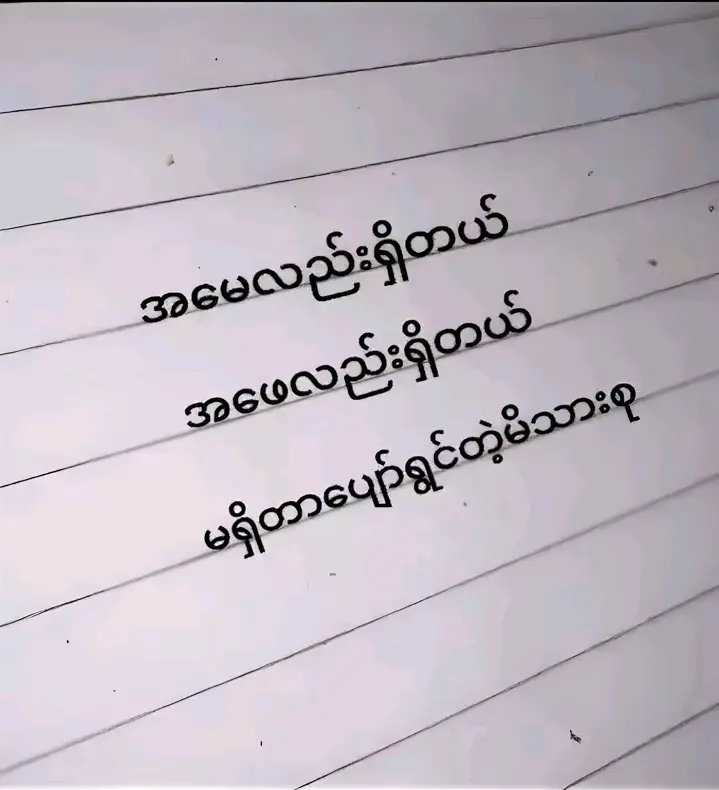 အမေလည်းရှိတယ်
အဖေလည်းရှိတယ်
မရှိတာပျော်ရွှင်တဲ့မိသားစု